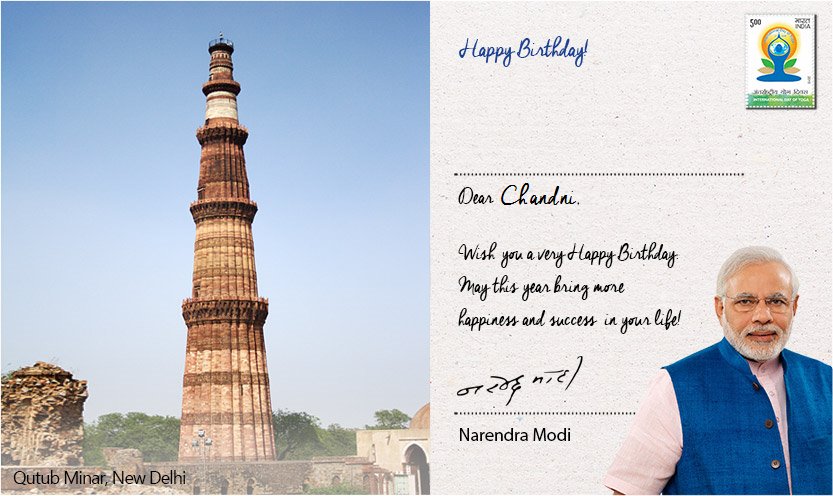 Happy Birthday!
5.00 भारत
INDIA
अंतर्राष्ट्रीय योग दिवस
INTERNATIONAL DAY OF YOGA
Dear Chandni,
Wish you a very Happy Birthday.
May this year bring more
happiness and success in your life!
नरेन्द्र मोदी
Narendra Modi
Qutub Minar, New Delhi